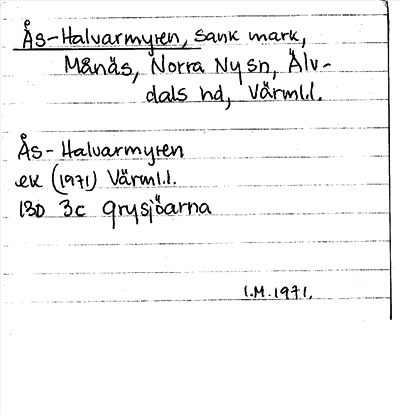 Ås-Halvarmyren, sank mark,
Månäs, Norra Ny sn, Älv-
dals hd, Värml.l.
Ås-Halvarmyren
ek (1971) Värml.l.
13D 3c Grysjöarna
I.M.1971.